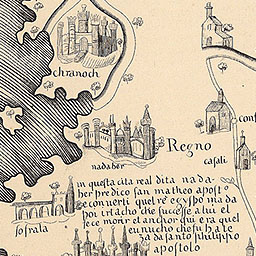 chranoch
Regno
nadaber
casali
in questa cita real dita nada-
ber predico san matheo aposto
e converti quel re egyppo ma da
poi irtacho che succese a lui el
fece morir el anchor qui era quel
eunucho che fu bate
za da santo philippo
apostolo
sofrala